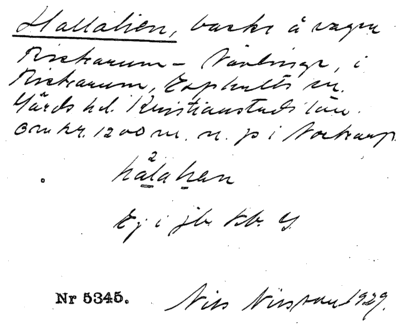 Hallahen, backe å vägen
Rickarum – Nävlinge, i
Rickarum, Ephults sn.
Gärds hd. Kristianstads län.
Omkr. 1200 m. n. p i
hålahen
Ej i jb. kb. G.
Nr 5345. Nils Nilsson 1929.